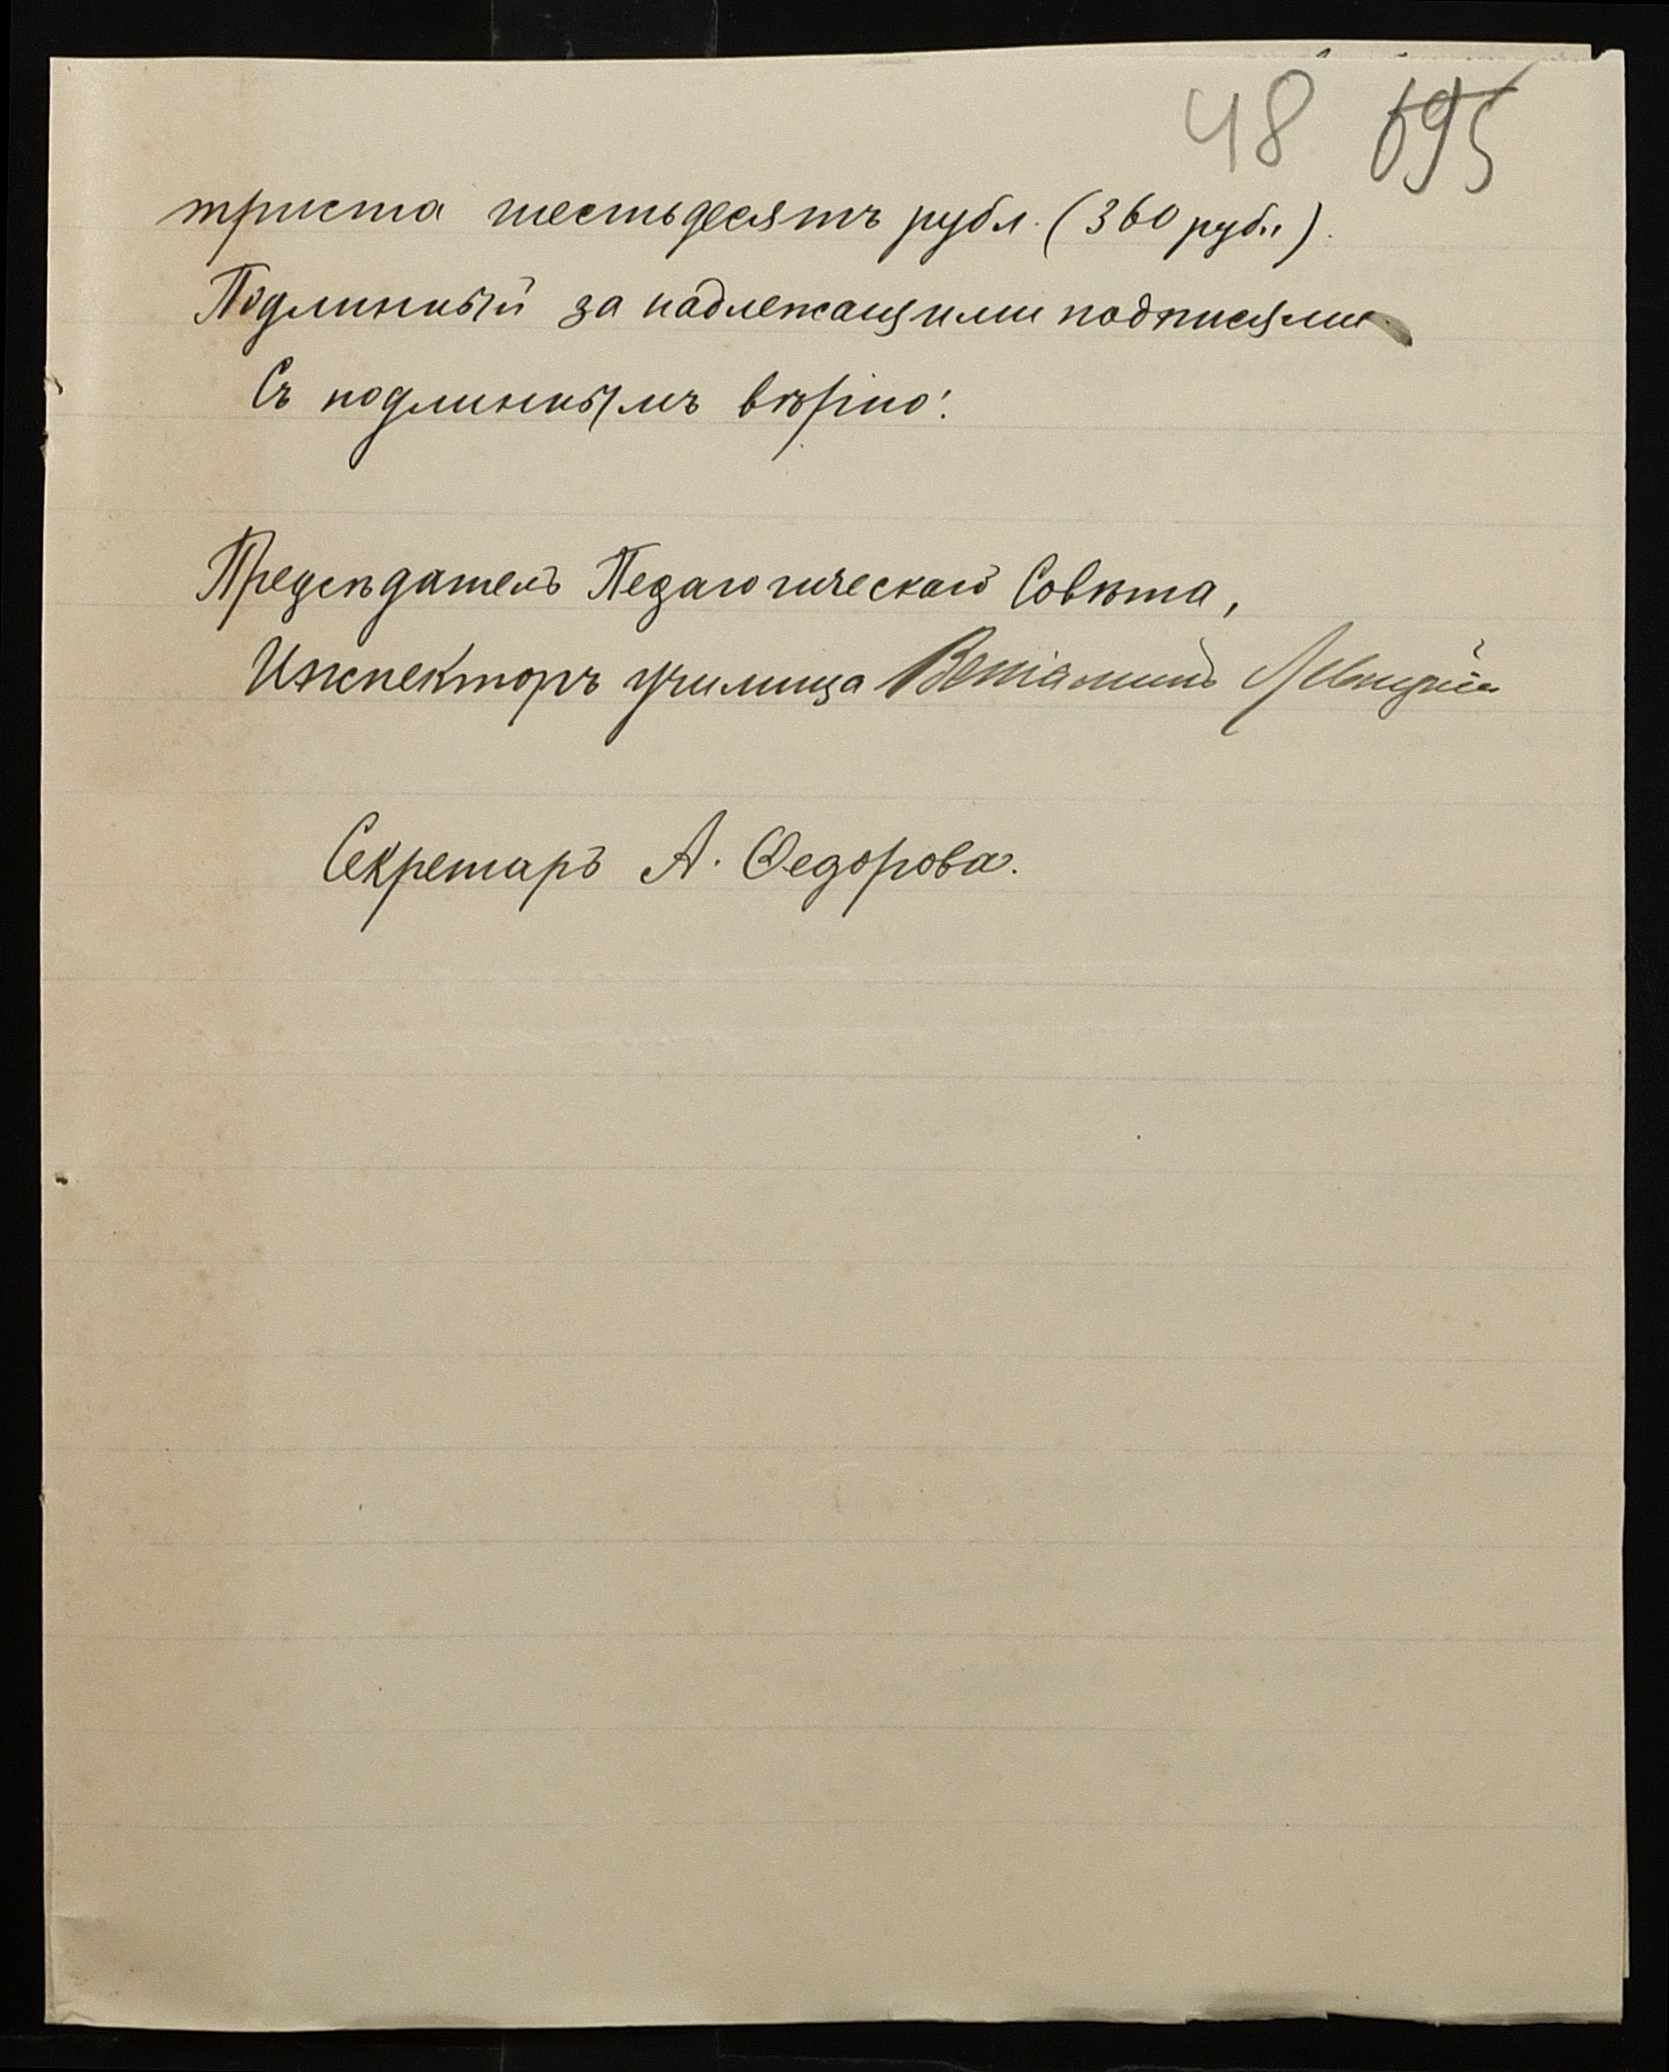 48 695
триста шестьдесятъ рубл. (360 рубл.)
Подлинный за надлежащими подписями.
Съ подлиннымъ вѣрно:
Предсѣдатель Педагогическаго Совѣта,
Инспекторъ училища Веніаминъ
Секретарь А. Ѳедорова.